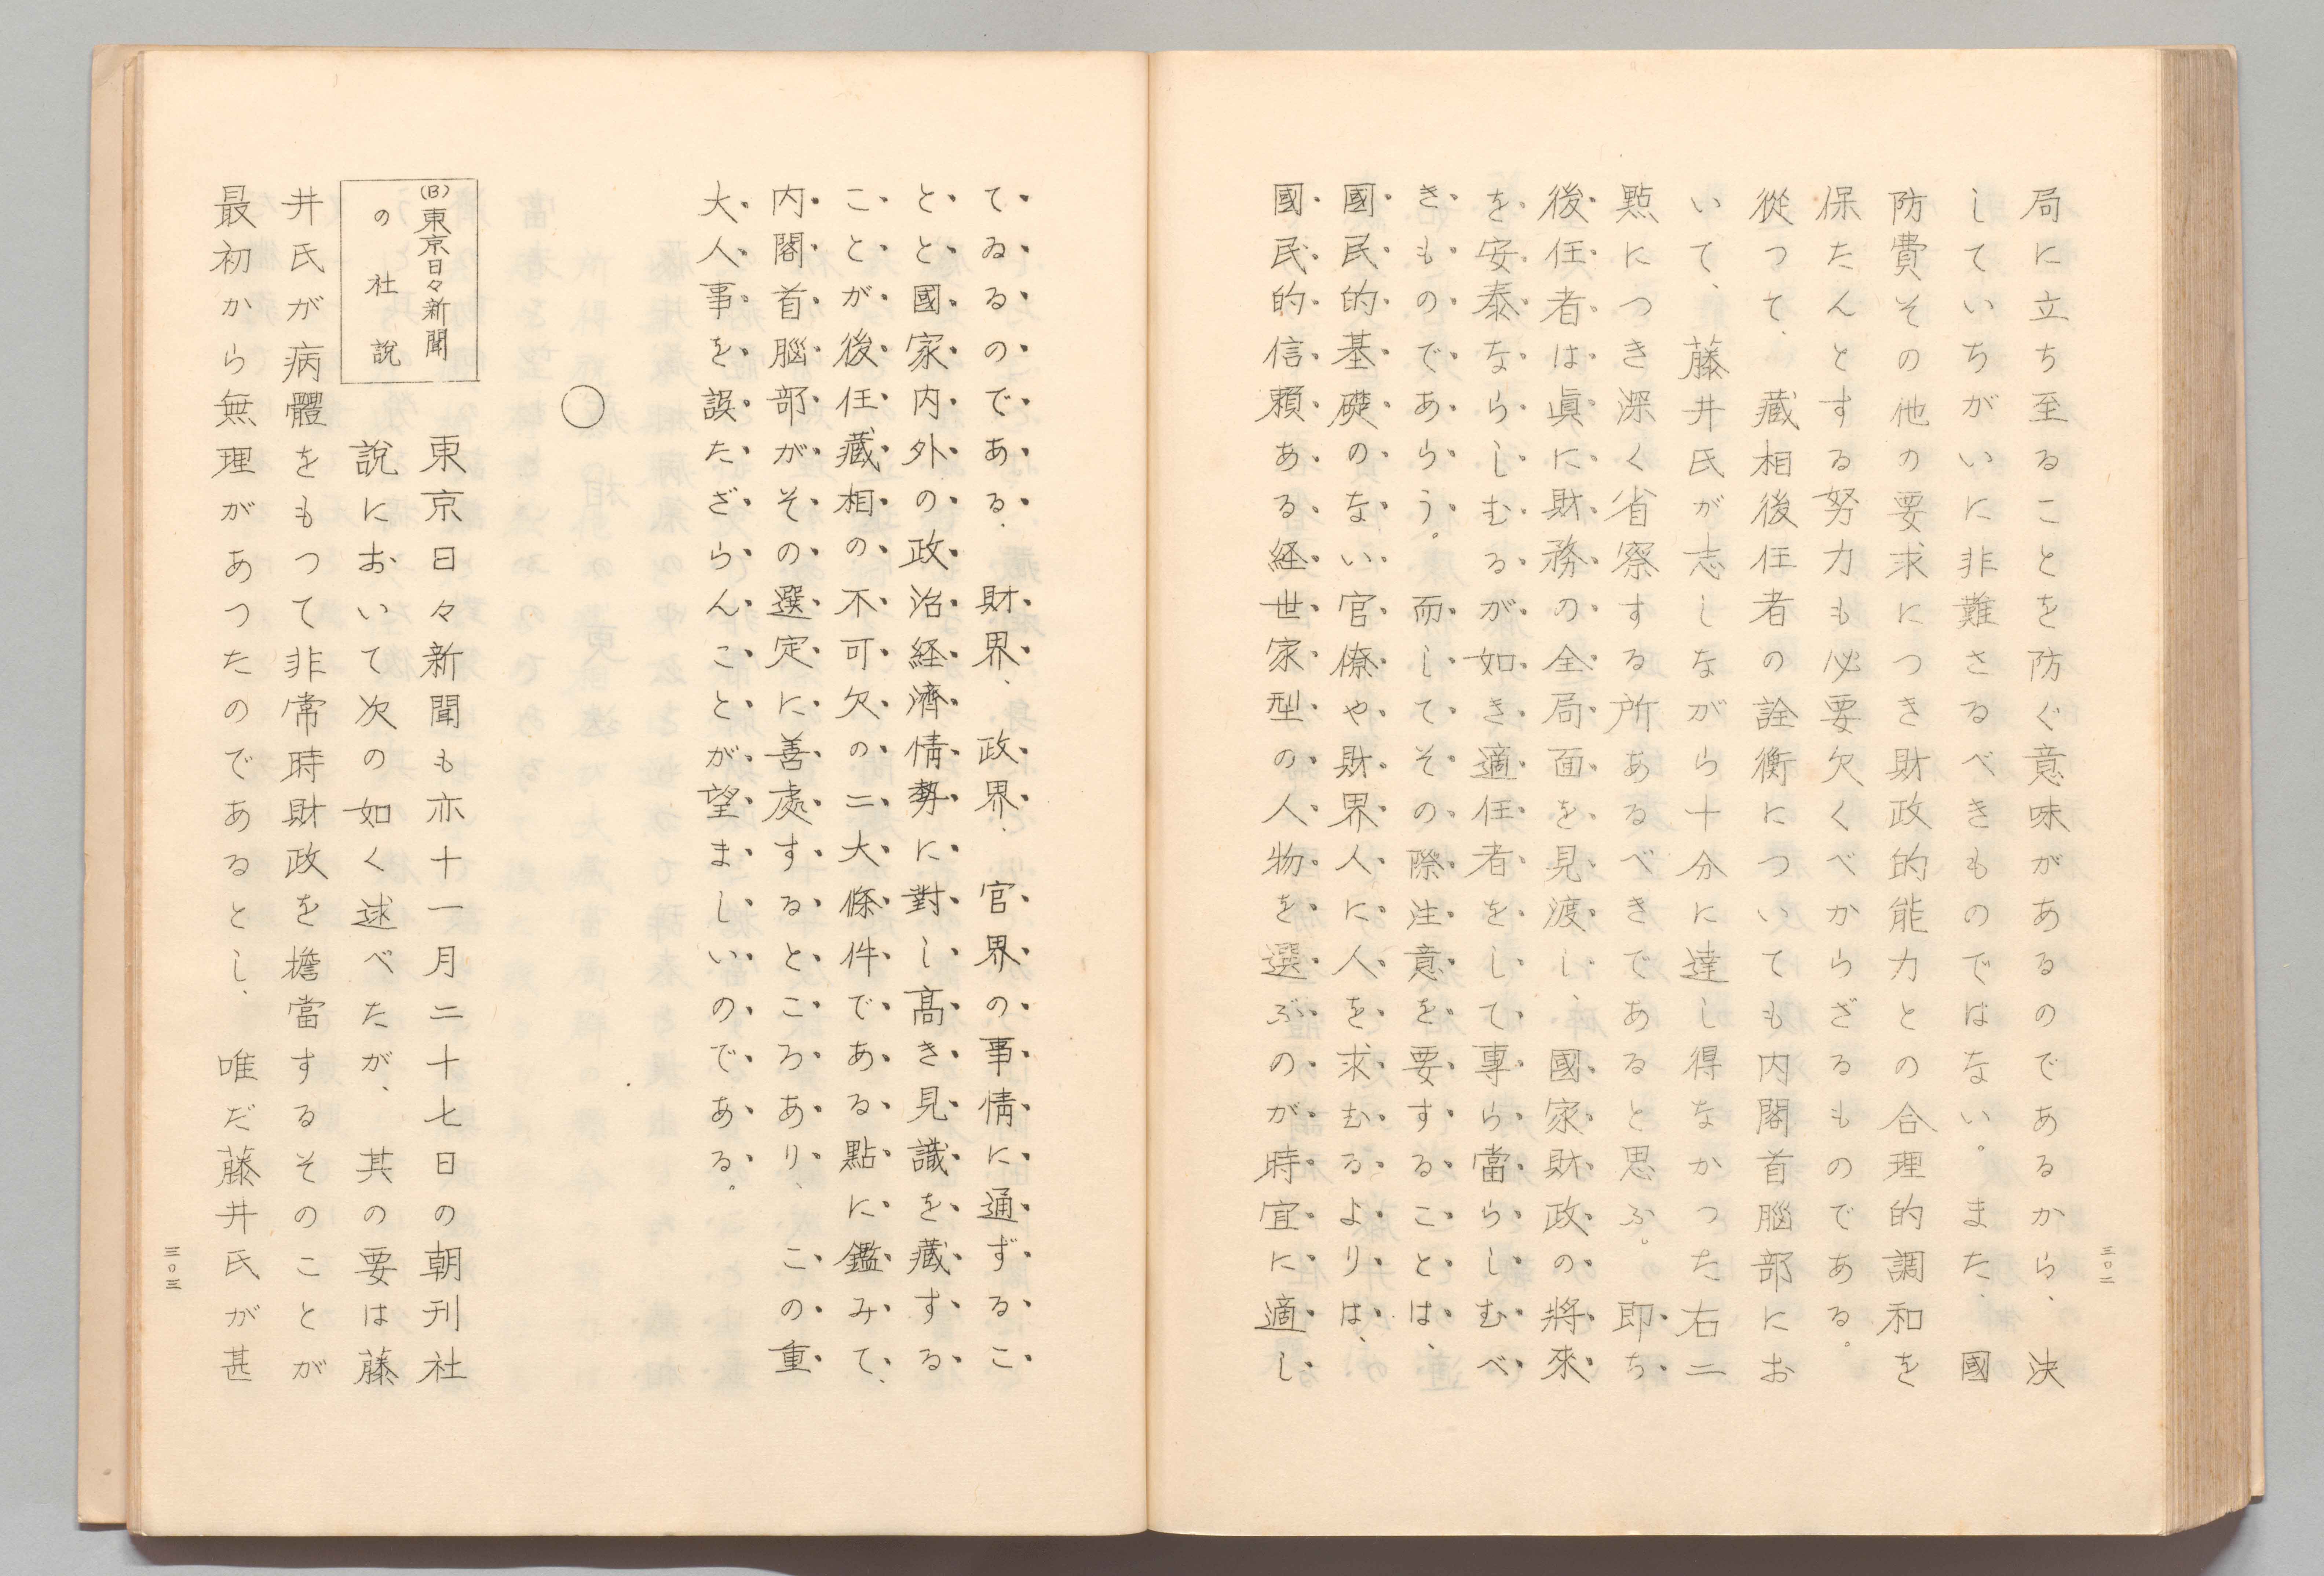 局に立ち至ることを防ぐ意味があるのであるから、決
していちがいに非難さるべきものではない。また、國
防費その他の要求につき財政的能力との合理的調和を
保たんとする努力も必要欠くべからざるものである。
從つて、藏相後任者の詮衡についても内閣首腦部にお
いて、藤井氏が志しながら十分に達し得なかつた右二
㸃につき深く省察する所あるべきであると思ふ。即ち
後任者は眞に財務の全局面を見渡し、國家財政の將來
を安泰ならしむるが如き適任者をして專ら當らしむべ
きものであらう。而してその際注意を要することは、
國民的基礎のない官僚や財界人に人を求むるよりは、
國民的信賴ある経世家型の人物を選ぶのが時宜に適し
三〇二
てゐるのである。財界、政界、官界の事情に通ずるこ
とと國家内外の政治経濟情勢に對し高き見識を藏する
ことが後任藏相の不可欠の二大條件である點に鑑みて、
内閣首腦部がその選定に善處するところあり、この重
大人事を誤たざらんことが望ましいのである。
〇
(B)東京日々新聞
の社説
東京日々新聞も亦十一月二十七日の朝刊社
説において次の如く述べたが、其の要は藤
井氏が病體をもつて非常時財政を擔當するそのことが
最初から無理があつたのであるとし、唯だ藤井氏が甚
三〇三